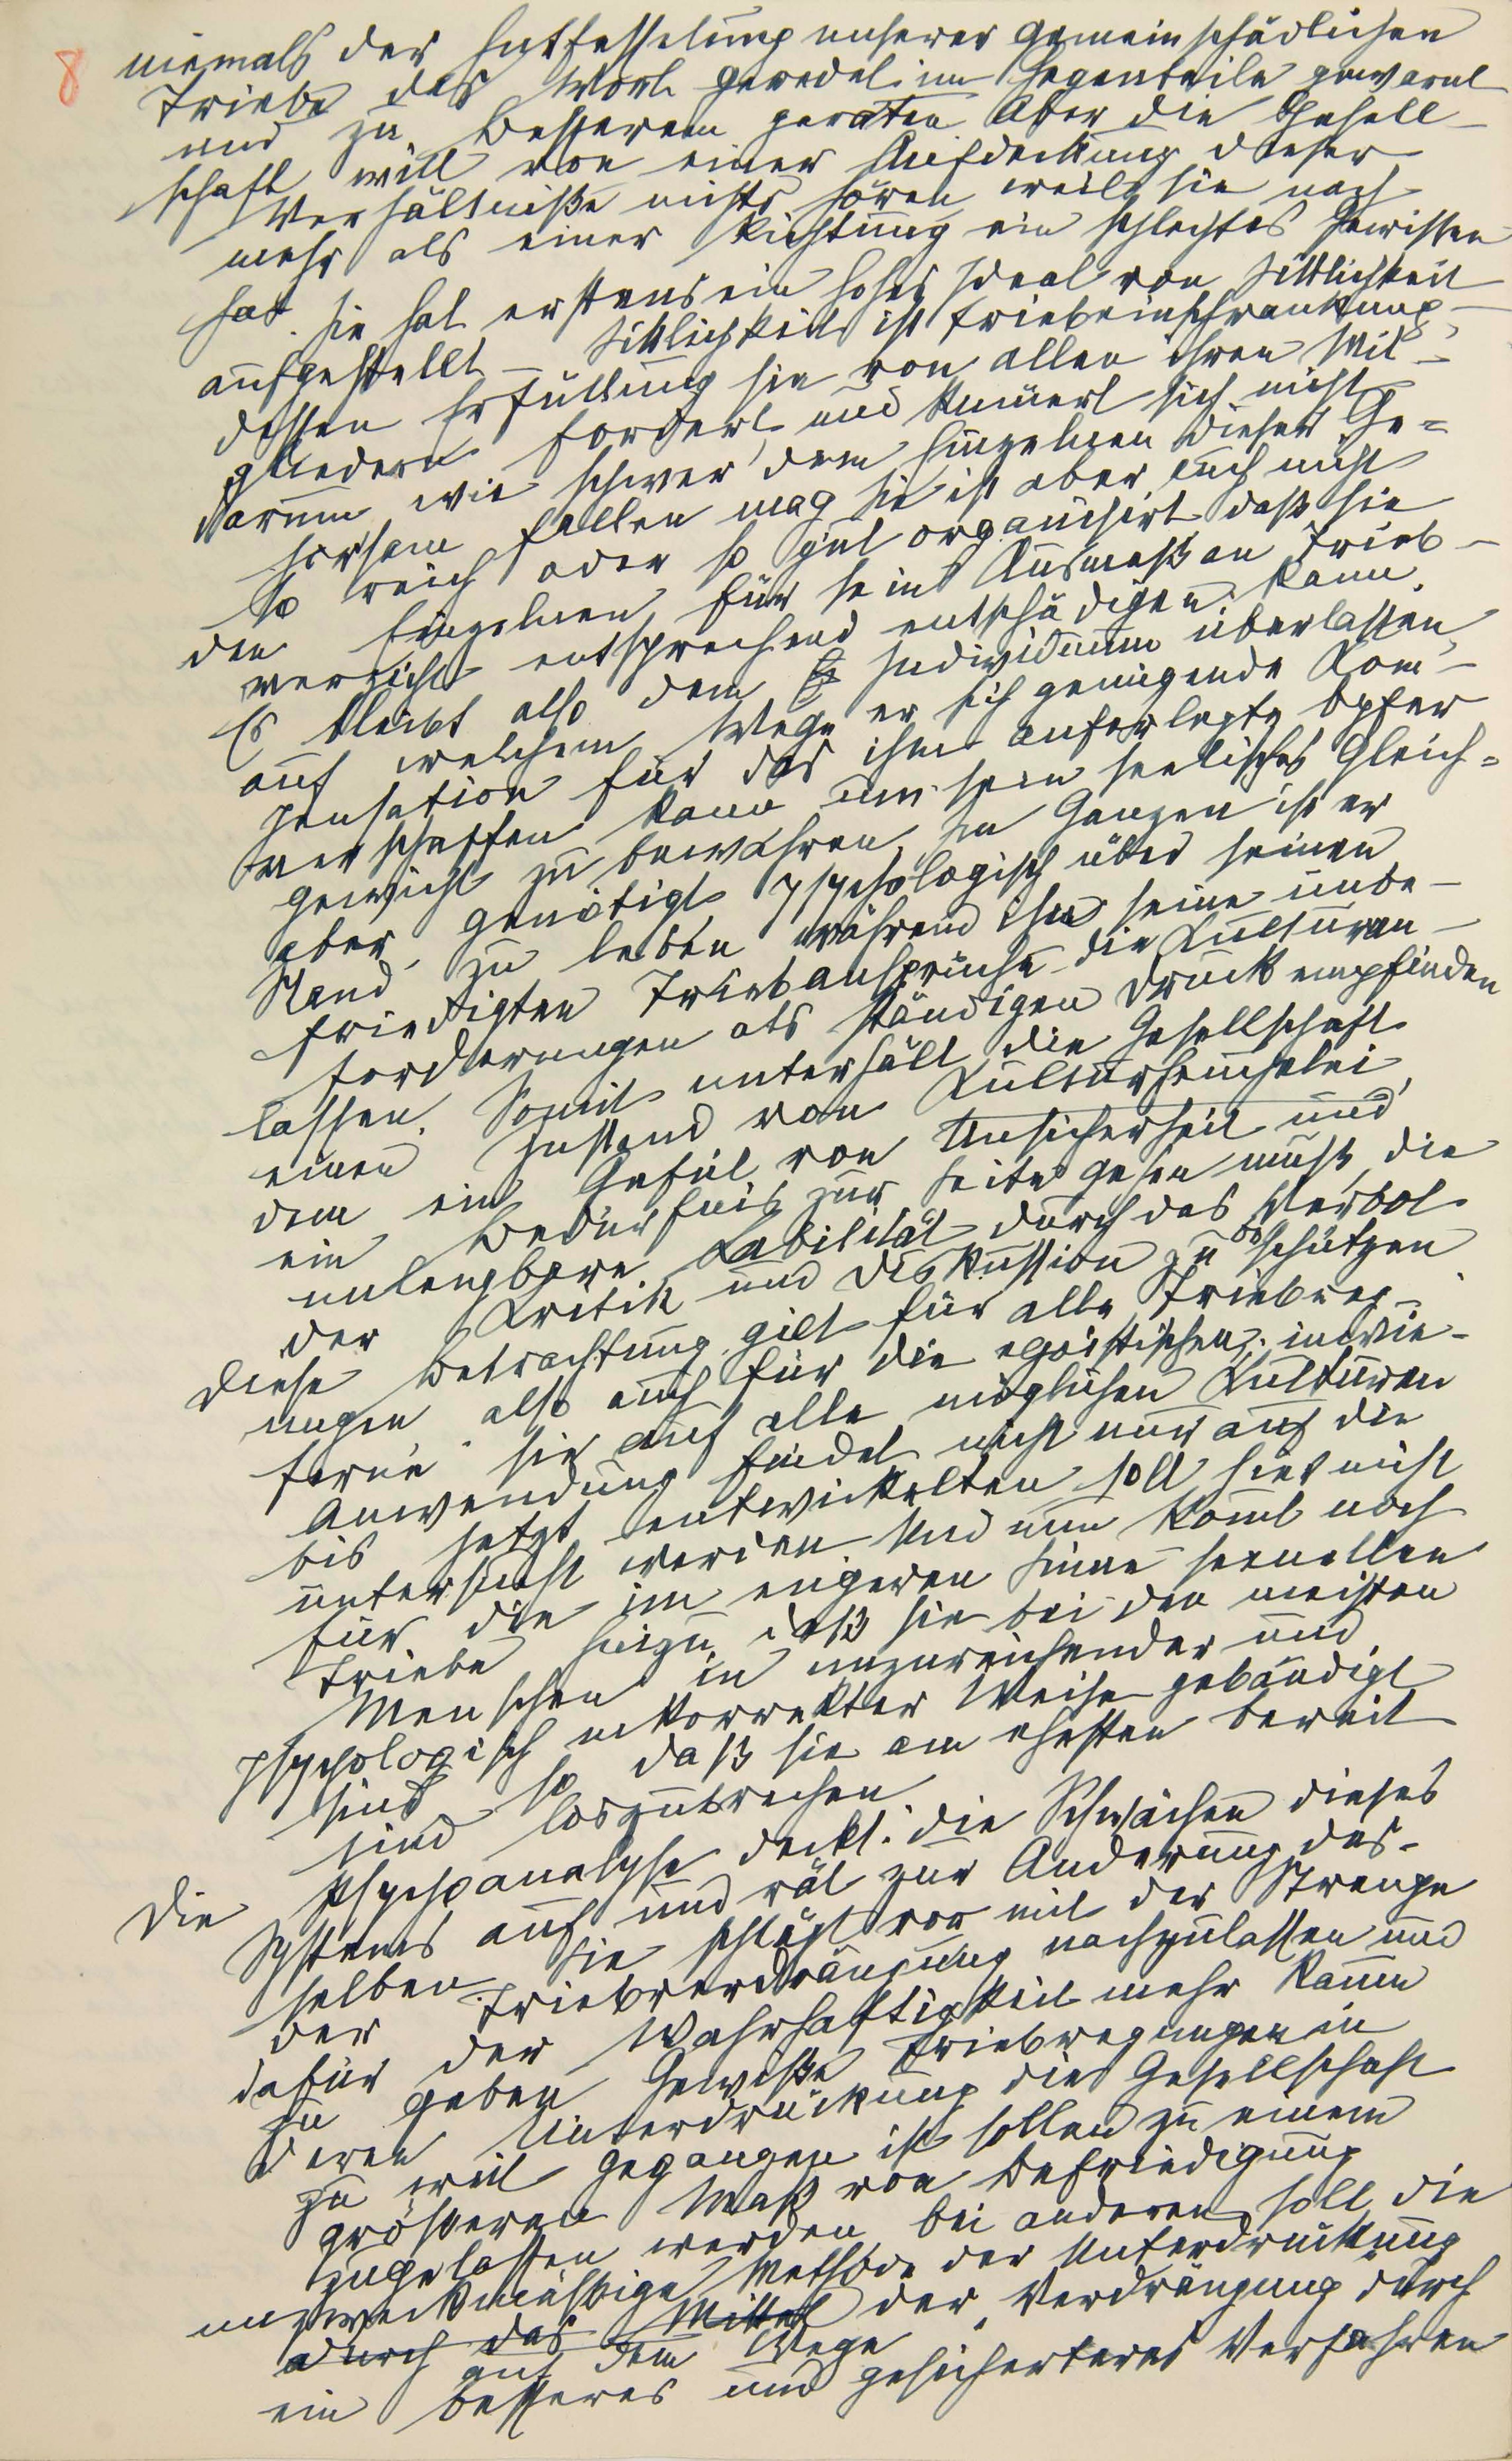 8 niemals der Entfesselung unserer gemeinschädlichen
Triebe das Wort geredet im Gegenteile gewarnt
und zu Besserem geraten Aber die Gesell-
schaft will von einer Aufdeckung dieser
Verhältniße nichts hören weil sie nach
mehr als einer Richtung ein schlechtes Gewissen
hat. Sie hat erstens ein hohes Ideal von Sittlichkeit
aufgestellt – Sittlichkeit ist Triebeinschränkung –
dessen Erfüllung sie von allen ihren Mit-
gliedern fordert, und kümert sich nicht
darum wie schwer dem Einzelnen dieser Ge=
horsam fallen mag Sie ist aber auch nicht
so reich oder so gut organisirt daß sie
den Einzelnen für sein Ausmaß an Trieb-
verzicht entsprechend entschädigen kann.
Es bleibt also dem Individuum überlassen,
auf welchem Wege er sich genügende Kom-
pensation für das ihm auferlegte Opfer
verschaffen kann um sein seelisches Gleich=
gewicht zu bewahren. Im Ganzen ist er
aber genötigt psychologisch über seinen
Stand zu leben während ihn seine unbe-
friedigten Triebansprüche die Kulturan-
forderungen als ständigen Druck empfinden
lassen. Somit unterhält die Gesellschaft
einen Zustand von Kulturheuchelei,
dem ein Gefül von Unsicherheit und
ein Bedürfnis zur Seite gehen muß, die
unleugbare Labilität durch das Verbot
der Kritik und Diskussion zu beschützen
Diese Betrachtung gilt für alle Triebreg-
ungen also auch für die egoistischen; inwie-
ferne sie auf alle möglichen Kulturen
Anwendung findet nicht nur auf die
bis jetzt entwickelten soll hier nicht
untersucht werden Und nun komt noch
für die im engeren Sinne sexuellen
Triebe hinzu, daß sie bei den meisten
Menschen in unzureichender und
psychologisch inkorrekter Weise gebändigt
sind so daß sie am ehesten bereit
sind loszubrechen
Die Psychoanalyse deckt die Schwächen dieses
Systems auf und rät zur Änderung des-
selben. Sie schlägt vor mit der Strenge
der Triebverdrängung nachzulassen und
dafür der Wahrhaftigkeit mehr Raum
zu geben Gewiße Triebregungen in
deren Unterdrückung die Gesellschaft
zu weit gegangen ist sollen zu einem
größeren Maß von Befriedigung
zugelassen werden bei anderen soll die
unzweckmäßige Methode der Unterdrückung
durch das Mittel der Verdrängung durch
auf dem Wege
ein besseres und gesicherteres Verfahren